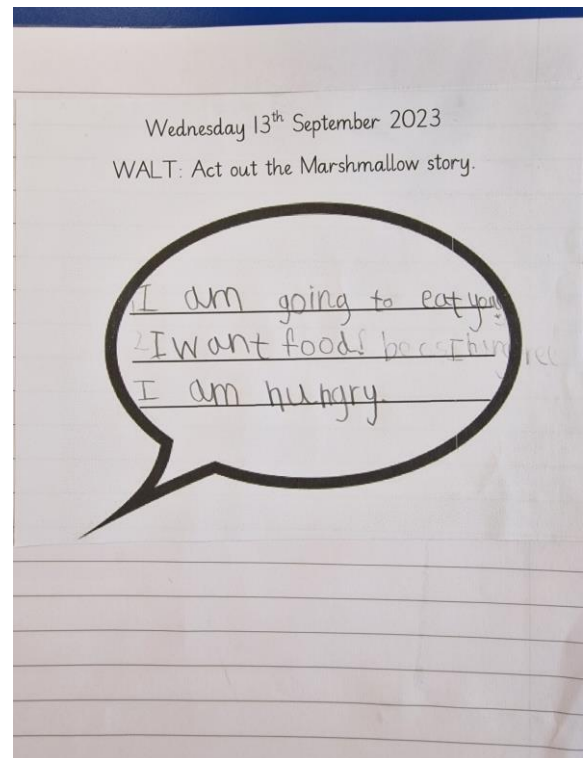 Wednesday 13th September 2023
WALT: Act out the Marshmallow story.
I am going to eat you
I want food! becs I hungree
I am hungry.